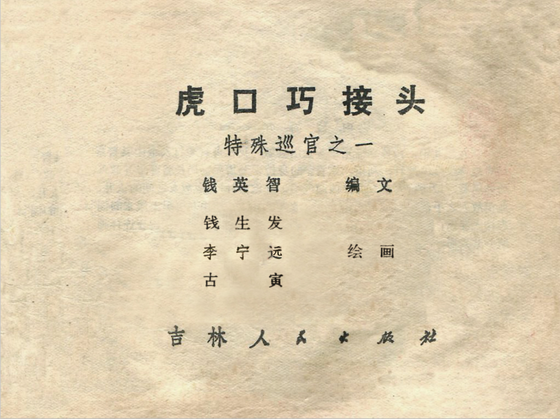 虎口巧接头
特殊巡官之一
钱英智 编文
钱生发
李宁远 绘画
古寅
吉林人民出版社